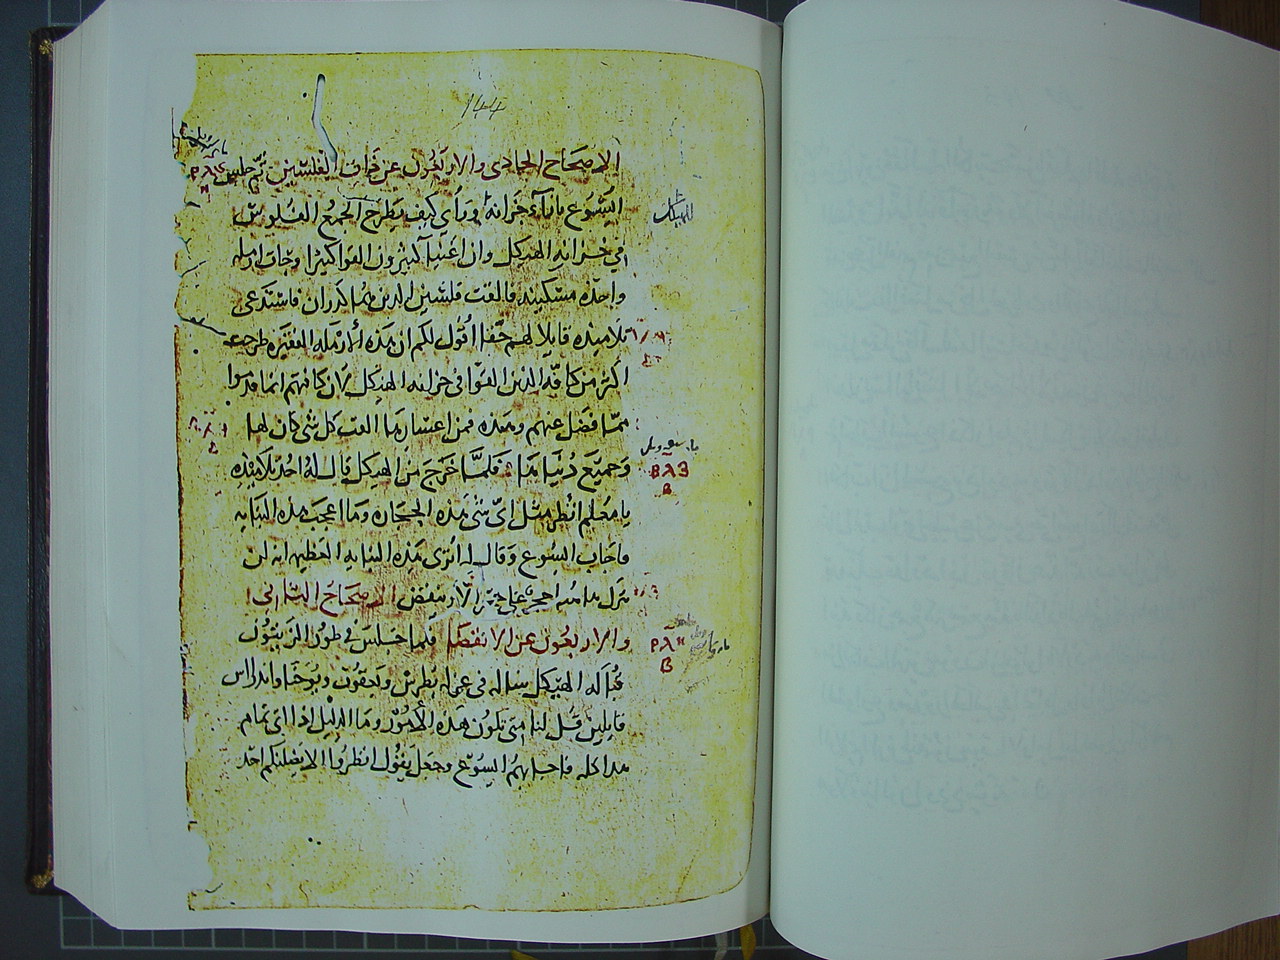 الاصحاح الحادى والاربعون عن فراق الفلسين ثم جلس
اليسوع بازآء خزانة وراى كيف يطرح الجمع الفلوس
في خزانه الهيكل وان اغنيا كثيرون القوا كثيرا وجات ارمله
واحده مسكينه فالقت فلسين الدين هما كدران فاستدعى
تلاميذه قايلا لهم حقا اقول لكم ان هذه الارمله الفقيره طرحت
اكثر من كافة الدين القوا في خزانه الهيكل لان كافتهم انما قدموا
مما فضل عنهم وهذه فمن اعسارها القت كل شى كان لها
وجميع دنياها فلما خرج من الهيكل قال له احد تلاميذه
يا معلم انظر مثل اي شى هذه الحجاره وما اعجب هذه البنايه
فاجاب اليسوع وقال له اترى هذه البنايه العظيمه انه لن
يترك هاهنا حجر على حجر الا ينقض الاصحاح التانى
والاربعون عن الانقضا فلما جلس في طور الزيتون
قباله الهيكل ساله في عزله بطرس ويعقوب ويوحنا واندراس
قايلين قل لنا متى تكون هذه الامور وما الدليل اذا اتى تمام
هذا كله فاجابهم اليسوع وجعل يقول انظروا الا يضلنكم احد
للهيكل